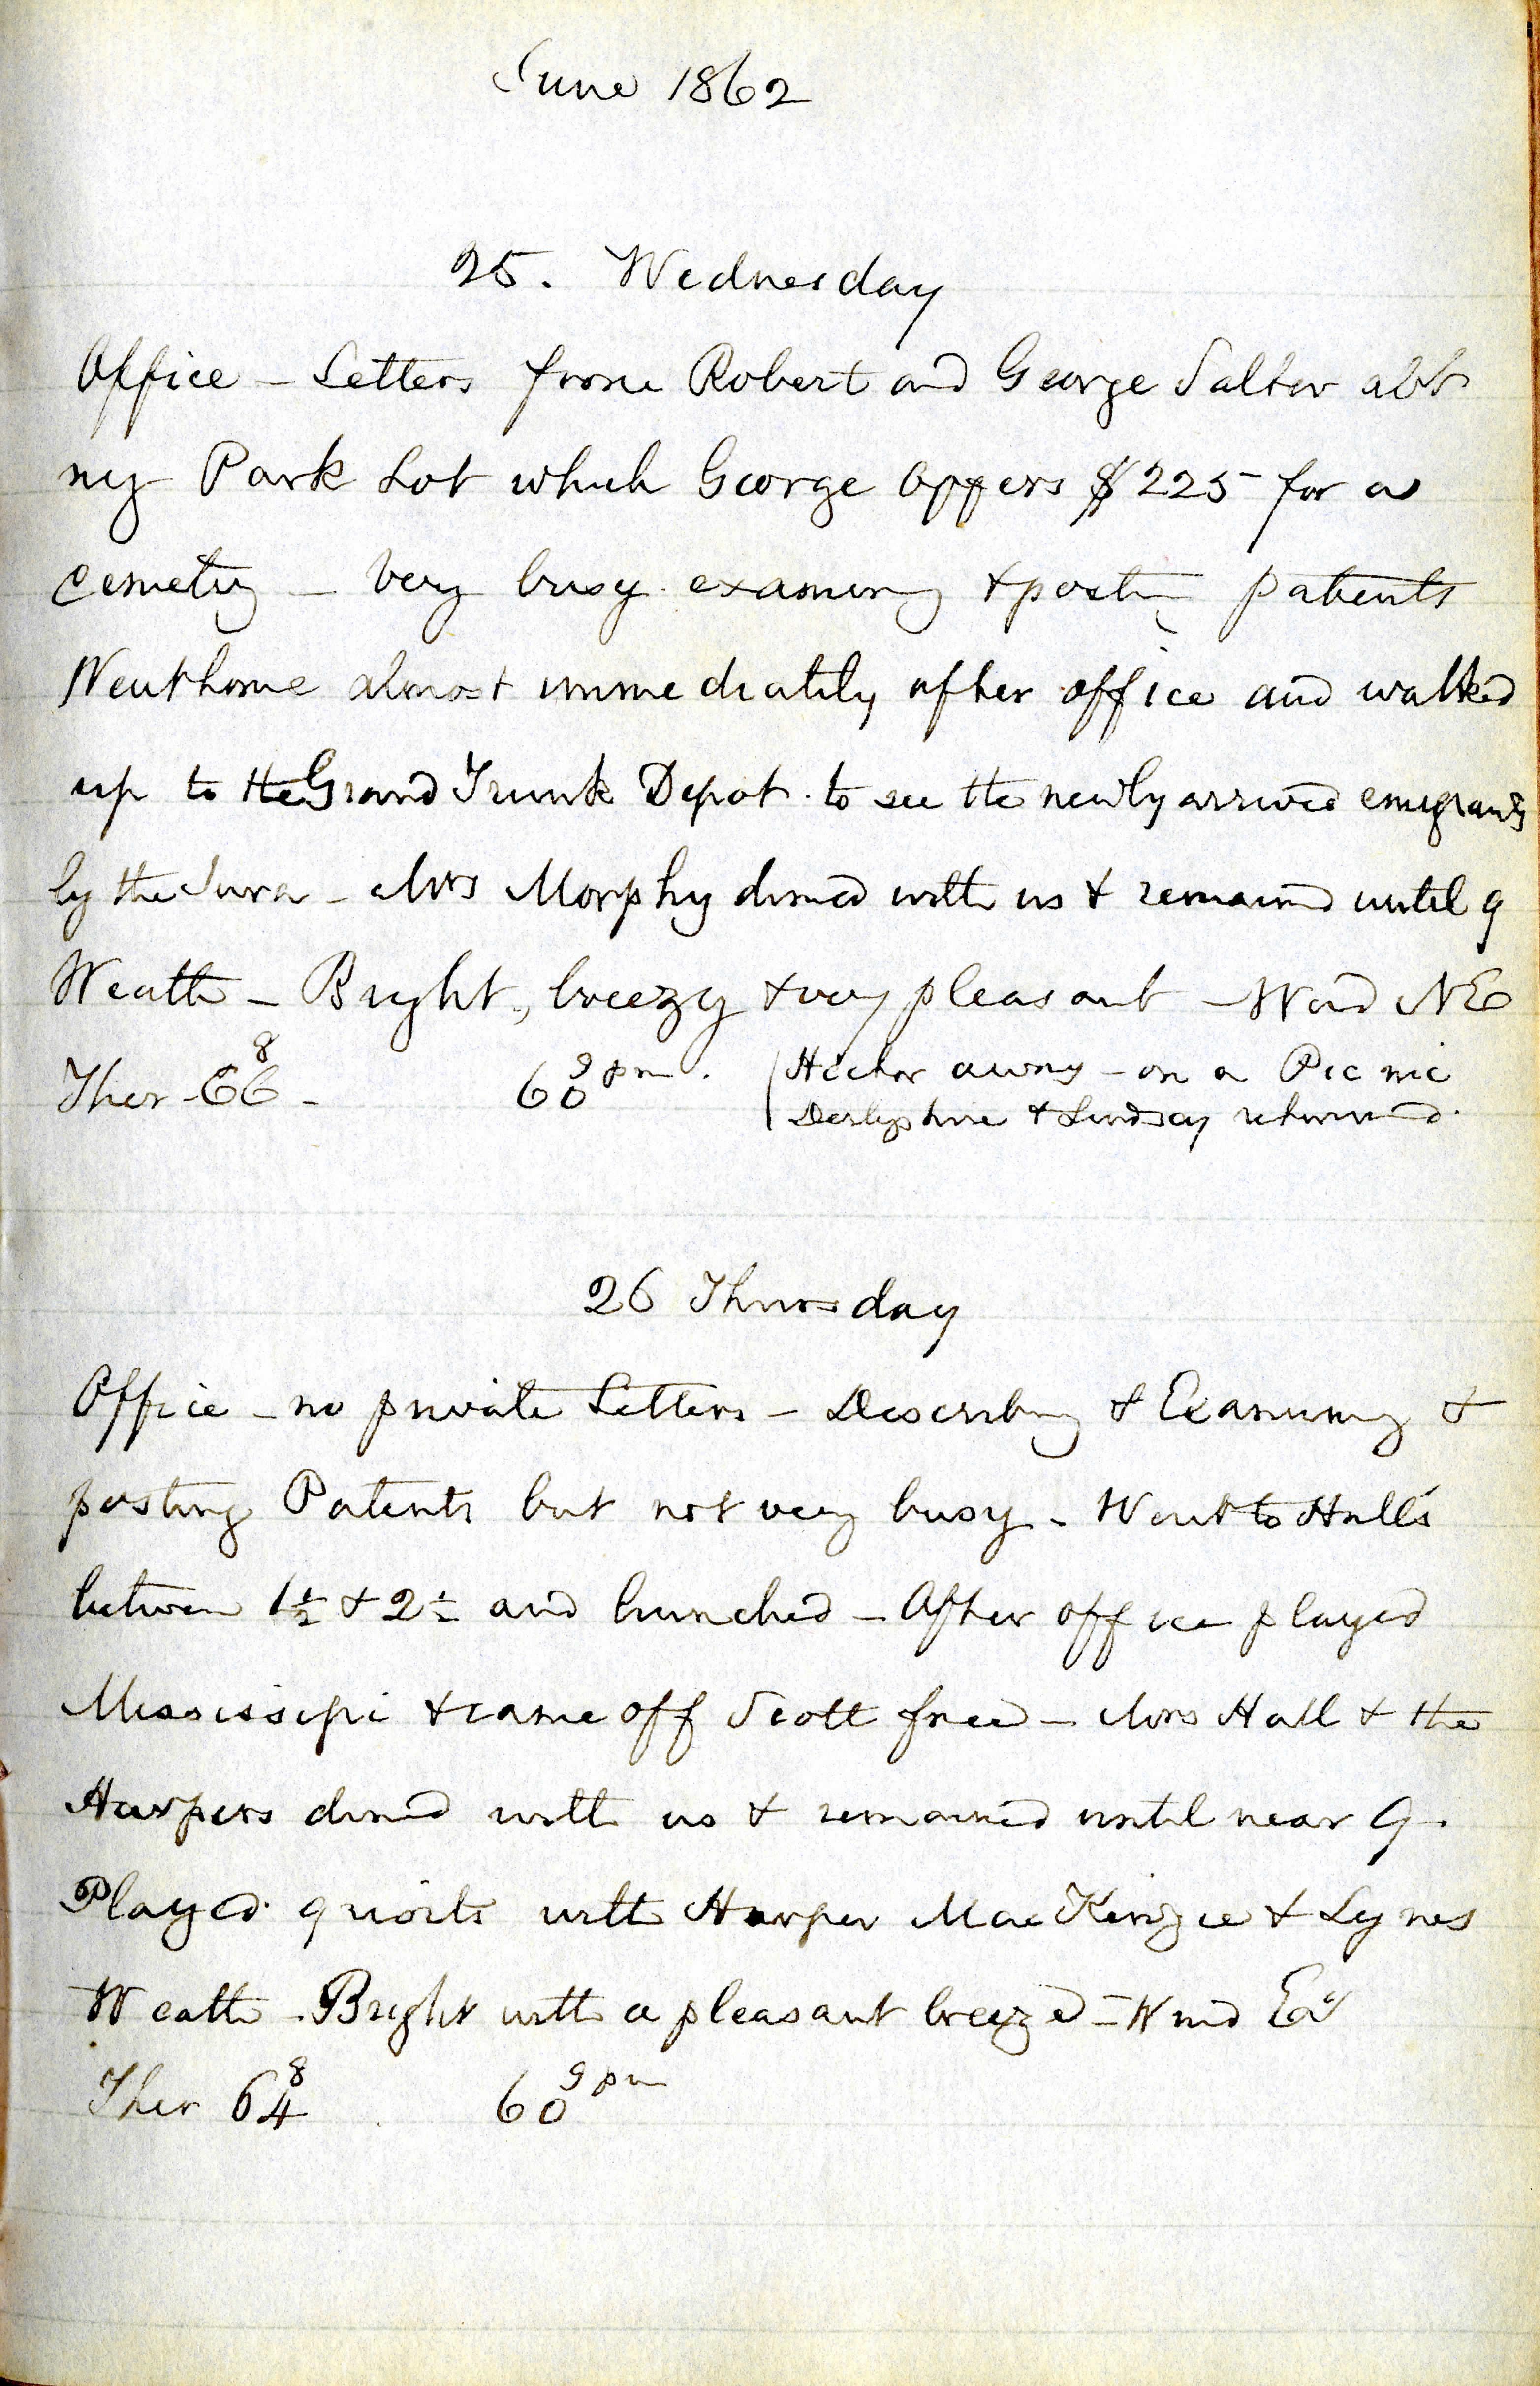 June 1862
25. Wednesday
Office - Letters from Robert and George Salter abt
my Park Lot which George offers $225 for a
Cemetery - Very busy examining & posting patents
Went home almost immediately after office and walked
up to the Grand Trunk Depot to see the newly arrived emigrants
by the Jura - Mrs Morphy dined with us & remained until 9
Weather - Bright, breezy & very pleasant - Wind NE
Ther - 66 8 - 60 9 pm. Hector away - on a Pic nic
Derbyshire & Lindsay returned.
26 Thursday
Office - no private Letters - Describing & Examining &
posting Patents but not very busy - Went to Hall's
between 1½ & 2½ and lunched - After office played
Mississipi & came off Scott free - Mrs Hall & the
Harpers dined with us & remained until near 9.
Played quoits with Harper MacKenzie & Lynes
Weather - Bright with a pleasant breeze - Wind Ea
Ther 64 8 60 9 pm